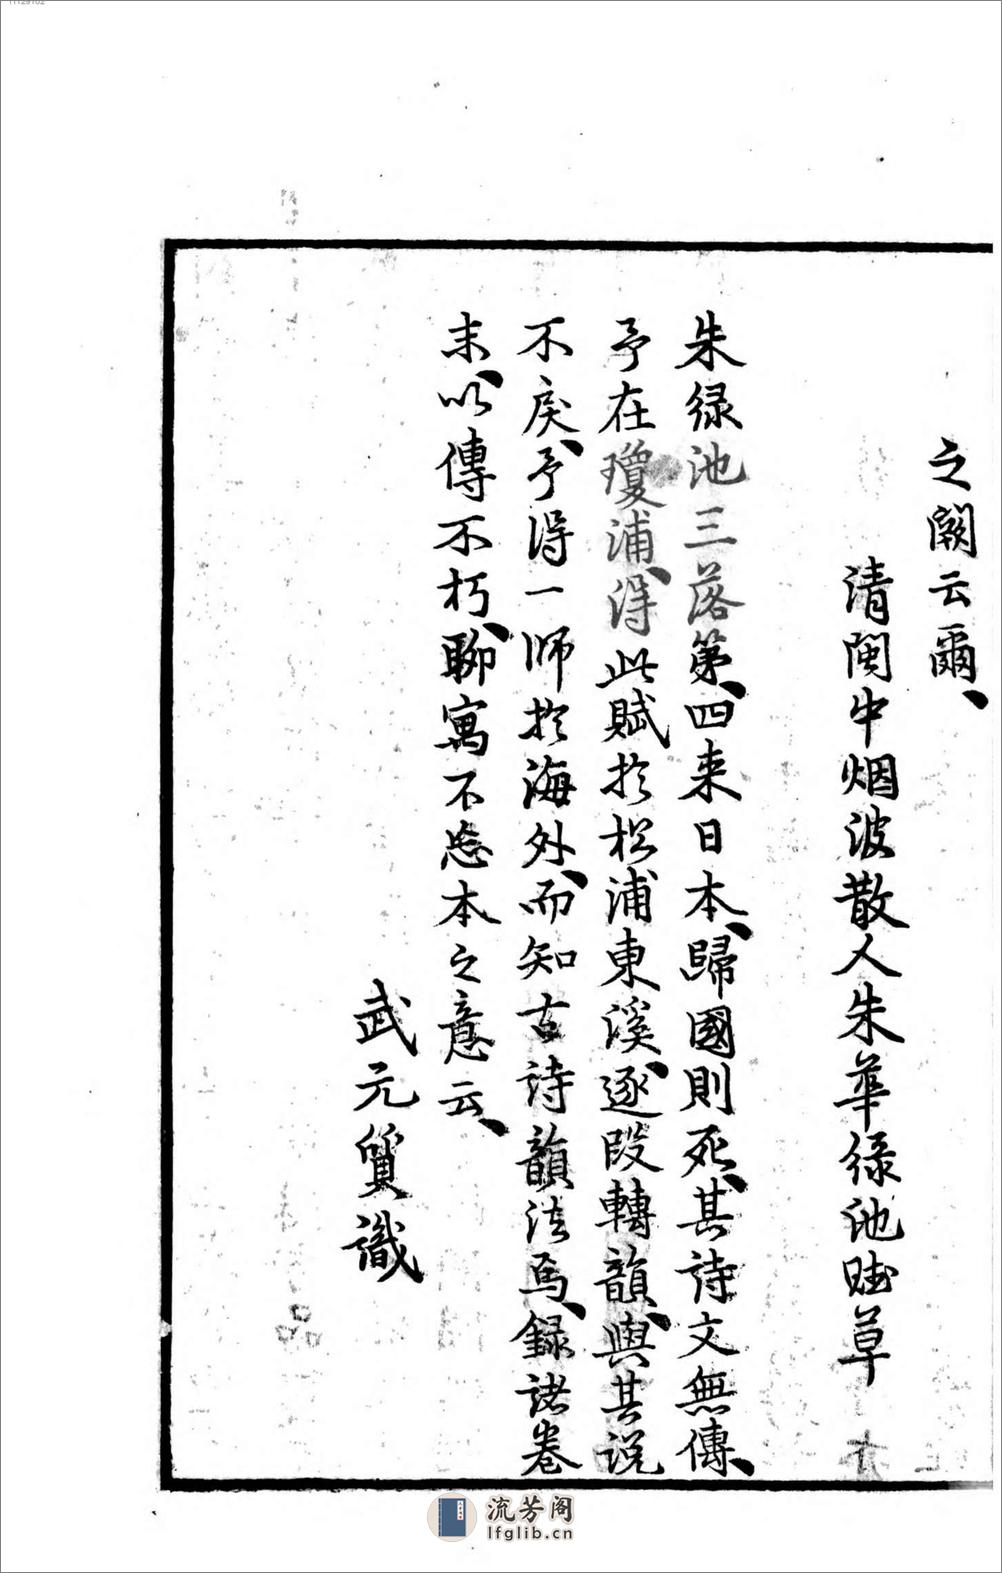 11129102
之闕云爾、
清閩中烟波散人朱華緑池賦草
朱緑池三落第、四来日本、歸國則死、其詩文無傳、
予在瓊浦、淂此賦扵松浦東溪、逐段轉韻、與其説
不戾、予淂一師扵海外、而知古詩韻法焉、録諸卷
末、以傳不朽、聊寓不忘本之意云、
武元質識
流芳阁
lfglib.cn